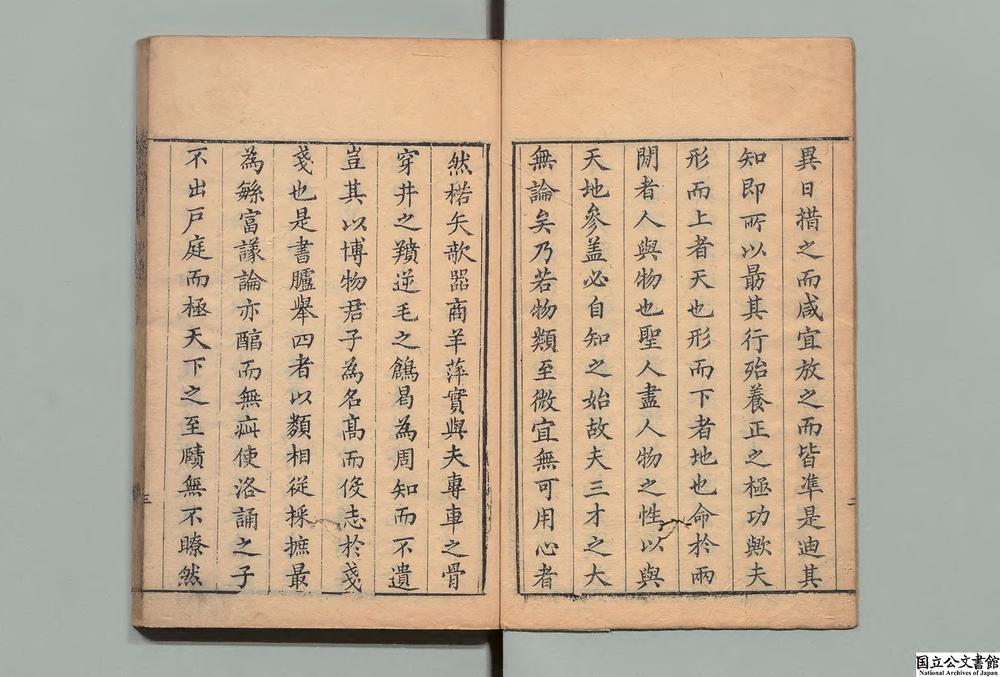 異日措之而咸宜放之而皆凖是迪其
知即所以最其行殆養正之極功歟夫
形而上者天也形而下者地也命於兩
間者人與物也聖人盡人物之性以與
天地參盖必自知之始故夫三才之大
無論矣乃若物類至微宜無可用心者
二
然楛矢欹器商羊萍實與夫專車之骨
穿井之羵逆毛之鶬曷為周知而不遺
豈其以博物君子為名髙而侈志於戔
戔也是書臚舉四者以類相從採摭最
為緐富議論亦醕而無疵使洛誦之子
不出戸庭而極天下之至賾無不瞭然
三
国立公文書館
National Archives of Japan